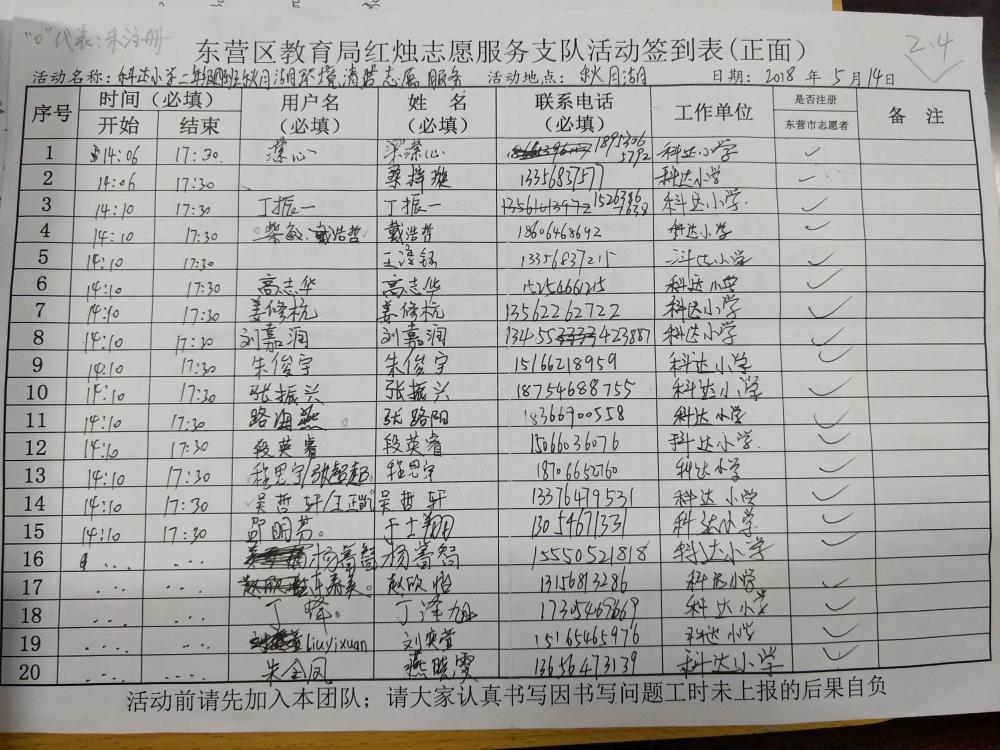 "o"代表:未注册
2.4
东营区教育局红烛志愿服务支队活动签到表(正面)
活动名称: 科达小学二年级四班秋月湖环境清洁志愿服务 活动地点: 秋月湖 日期: 2018 年 5 月 14 日
序号 时间(必填) 用户名(必填) 姓名(必填) 联系电话(必填) 工作单位 是否注册东营市志愿者 备注
开始 结束
1 14:06 17:30 潆心 梁潆心 18953065792 科达小学 ✓
2 14:06 17:30 13356837577 科达小学 ✓
3 14:10 17:30 丁振一 丁振一 15263867638 科达小学. ✓
4 14:10 17:30 柴敏.戴浩哲 戴浩哲 18606468692 科达小学 ✓
5 14:10 17:30 13356837215 科达小学 ✓
6 14:10 17:30 高志华 高志华 15254661215 科达小学 ✓
7 14:10 17:30 姜修杭 姜修杭 13562262722 科达小学 ✓
8 14:10 17:30 刘嘉润 刘嘉润 13455423887 科达小学 ✓
9 14:10 17:30 朱俊宇 朱俊宇 15166218959 科达小学 ✓
10 14:10 17:30 张振兴 张振兴 18754688755 科达小学 ✓
11 14:10 17:30 路海燕。 张路阳 18366900558 科达小学 ✓
12 14:10 17:30 段英睿 段英睿 15066036076 科达小学. ✓
13 14:10 17:30 程思宇/张超超. 程思宇 18706652760 科达小学 ✓
14 14:10 17:30 吴哲轩/王正凯 吴哲轩 13376479531 科达小学 ✓
15 14:10 17:30 于士翔 13054671331 科达小学 ✓
16 ... ... 杨蕾智 杨蕾智 15550521818 科达小学 ✓
17 .... .... 赵欣怡 13156813286 科达小学 ✓
18 .... .... 丁峰。 丁泽旭 17305469669 科达小学 ✓
19 .... .... liuyixuan 刘奕萱 15165465976 科达小学 ✓
20 .... .... 朱金凤 燕晓雯 13656473139 科达小学 ✓
活动前请先加入本团队;请大家认真书写因书写问题工时未上报的后果自负